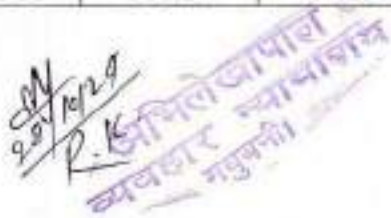 20/10/20
R.K
अभिलेखापाल
व्यवहार न्यायालय
मधुबनी।